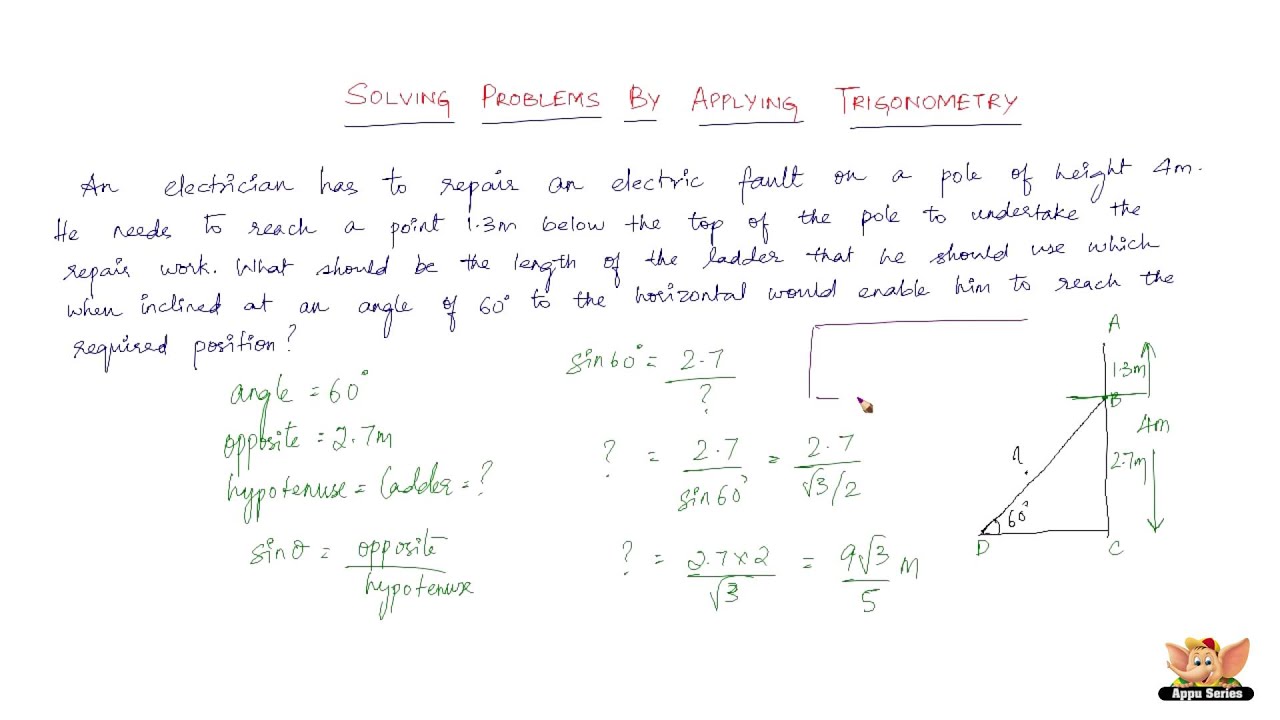 SOLVING PROBLEMS BY APPLYING TRIGONOMETRY
An electrician has to repair an electric fault on a pole of height 4m.
He needs to reach a point 1.3m below the top of the pole to undertake the
repair work. What should be the length of the ladder that he should use which
when inclined at an angle of 60° to the horizontal would enable him to reach the
required position?
angle = 60°
opposite = 2.7m
hypotenuse = Ladder = ?
sinθ = opposite
hypotenuse
sin60° = 2.7
?
? = 2.7 = 2.7
sin60° √3/2
? = 2.7×2 = 9√3 m
√3 5
A
1.3m
B
4m
2.7m
60°
D C
Appu Series